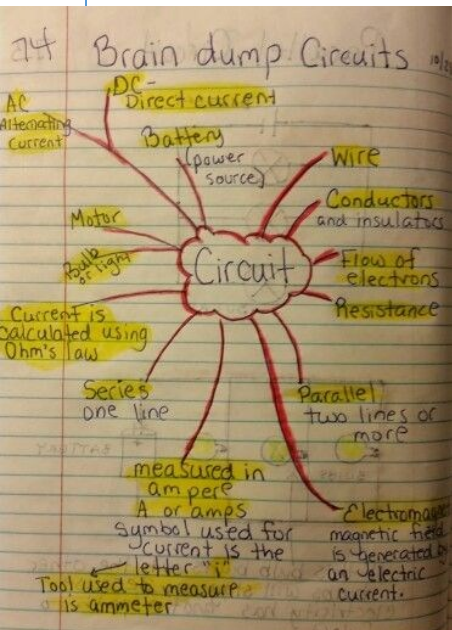 74 Brain dump Circuits
AC
Alternating
current
DC-
Direct current
Battery
(power
source)
Wire
Conductors
and insulators
Motor
Bulb
or light
Circuit
Flow of
electrons
Resistance
Current is
calculated using
Ohm's law
Series
one line
Parallel
two lines or
more
measured in
ampere
A or amps
symbol used for
current is the
letter "i"
Tool used to measure
is ammeter
magnetic field
is generated
an electric
current.